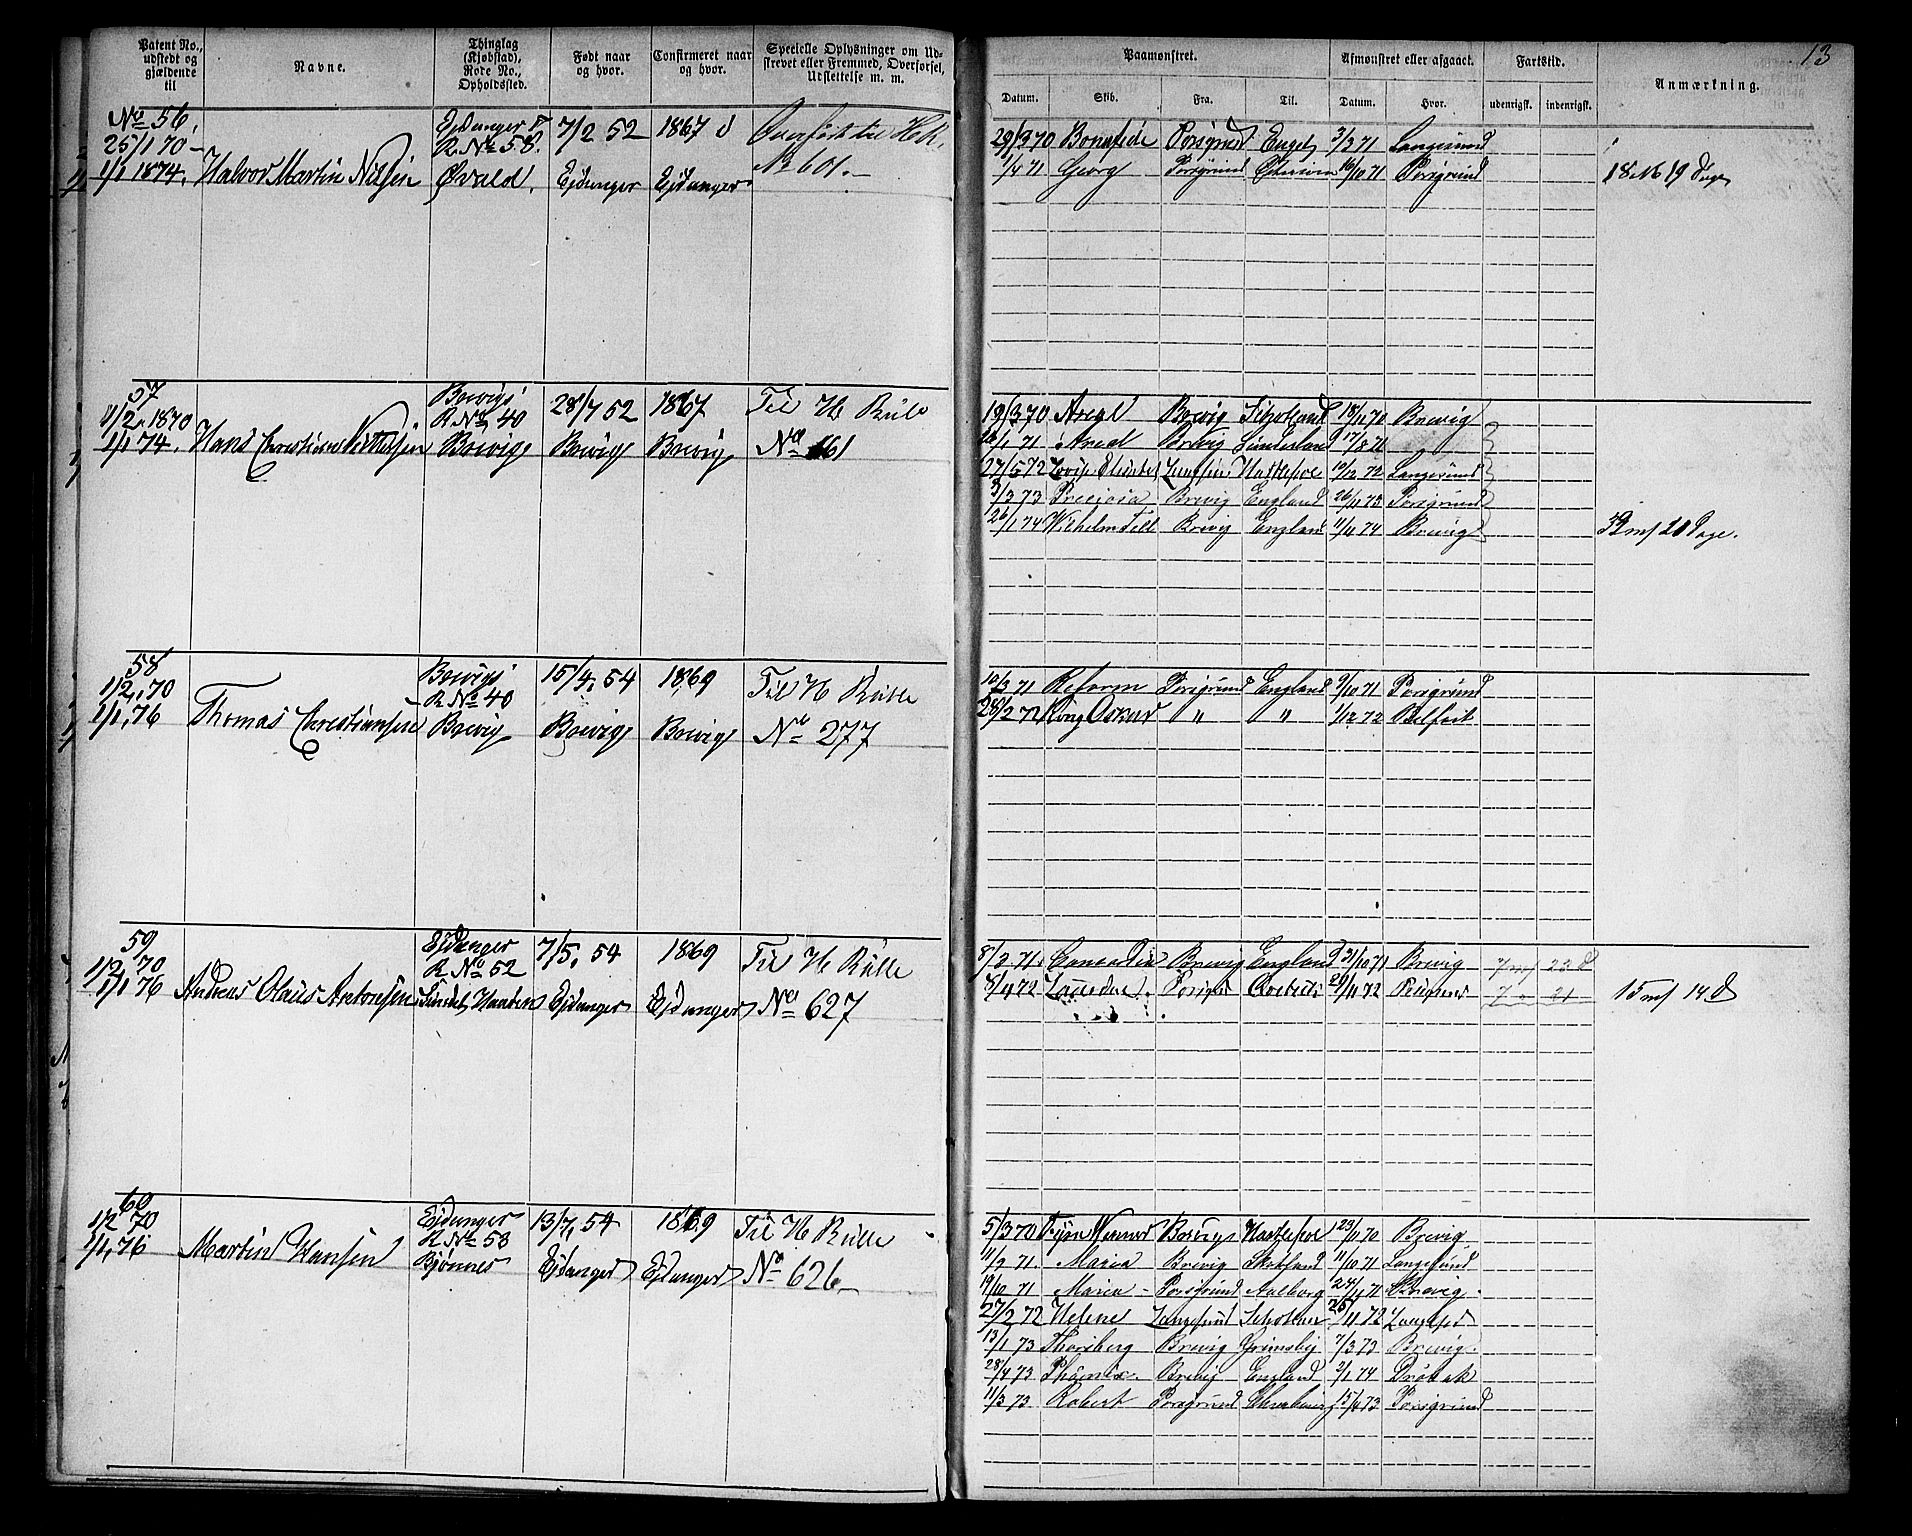 13
Patent No., udstedt og gjældende til
Navne.
Thinglag (Kjøbstad), Rode No., Opholdssted.
Født naar og hvor.
Confirmeret naar og hvor.
Specielle Oplysninger om Udskrevet eller Fremmed, Overførsel, Udslettelse m. m.
Paamønstret.
Afmønstret eller afgaaet.
Fartstid.
Anmærkning.
Datum. Skib. Fra. Til. Datum. Hvor. udenrigsk. indenrigsk.
No 56
Eidanger 7/2 52 1867
25/1 70 R. No 58.
1/1 1874. Halvor Martin Nilsen Øvald. Eidanger Eidanger No 601.
29/3 70 Bonafide Porsgrund Engel 3/3 71 Langesund
1/4 71 Georg Porsgrund 16/10 71 Porsgrund 18 M 19 Dage
57
Brevigs 28/7 52 1867 Til H Rulle
11/2 1870 R No 40
1/1 74. Hans Christian Brevig Brevig Brevig No 661
19/3 70 Axel Brevig Skotland 18/11 70 Brevig
Axel Brevig Sunderland 17/8 71
27/5 72 Langesund Hartlepool 19/12 72 Langesund
3/3 73 Preciosa Brevig England 26/11 73 Porsgrund
26/1 74 Wilhelm Tell Brevig England 11/11 74 Brevig 39 m 20 Dage.
58
1/2 70 Brevigs 15/4 54 1869 Til H Rulle
R No 40
1/1 76 Thomas Christiansen Brevig Brevig Brevig No 277
10/3 71 Reform Porsgrund England 9/10 71 Porsgrund
28/2 72 Kong Oskar " " 1/12 72 Belfast
59
1/2 70 Eidanger 7/5 54 1869 Til H Rulle
R No 52
1/1 76 Andreas Olaus Antonsen Eidanger Eidanger No 627
8/2 71 Concordia Brevig England 21/10 71 Brevig 7 m 23 d
7 " 21 15 m 14 D
60
1/2 70 Eidanger 13/7 54 1869 Til H Rulle
R No 53
1/1 76 Martin Hansen Bjønnes Eidanger Eidanger No 626
5/3 70 Brevigs Hartlepool 23/11 70 Brevig
11/2 71 Maria Brevig Skotland 11/10 71 Langesund
19/10 71 Maria Porsgrund Aalborg 24/11 71 Brevig
27/2 72 Helene Langesund 25/11 72
13/1 73 Thorsberg Brevig Grimsby 7/3 73 Brevig
28/4 73 Phønix Brevig England 2/1 74 Drøbak
11/3 73 Robert Porsgrund Cherbourg 15/4 73 Porsgrund